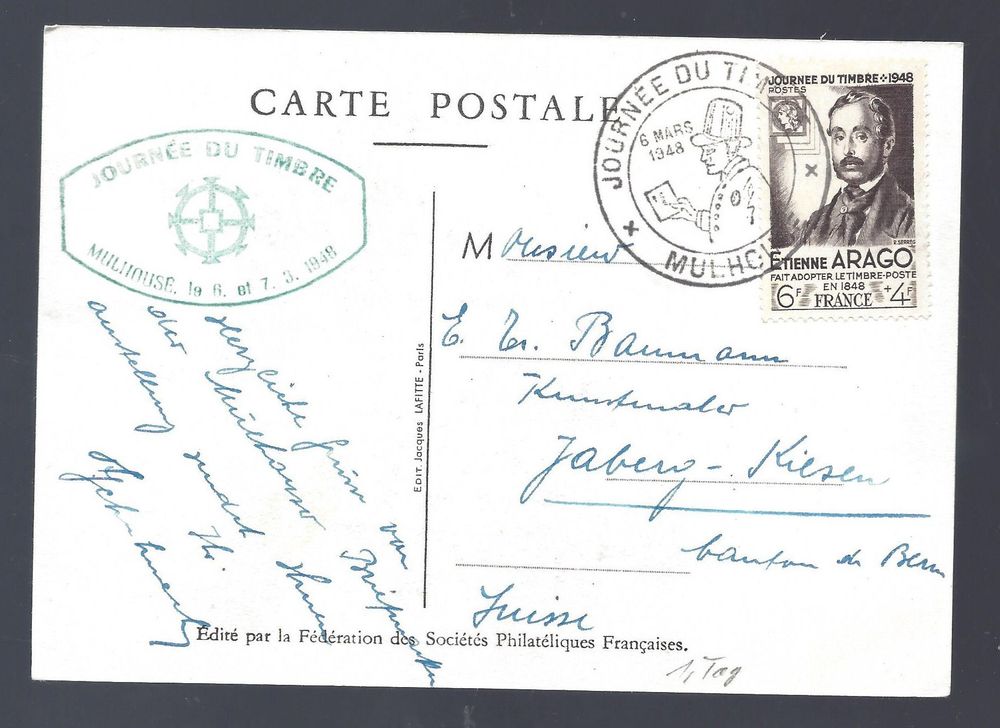 CARTE POSTALE
JOURNÉE DU TIMBRE
MULHOUSE, le 6. et 7. 3. 1948
JOURNÉE DU TIM
6 MARS
1948
MULHO
JOURNÉE DU TIMBRE 1948
POSTES
ETIENNE ARAGO
FAIT ADOPTER LE TIMBRE-POSTE
EN 1848
6F FRANCE +4F
Monsieur
Baumann
Kunstmaler
Jaberg - Kiesen
canton de Bern
Suisse
Herzliche Grüsse von
der Mülhauser
ausstellung sendet Ihnen
Ihr
EDIT. Jacques LAFITTE - Paris
Édité par la Fédération des Sociétés Philatéliques Françaises.
1. Tag